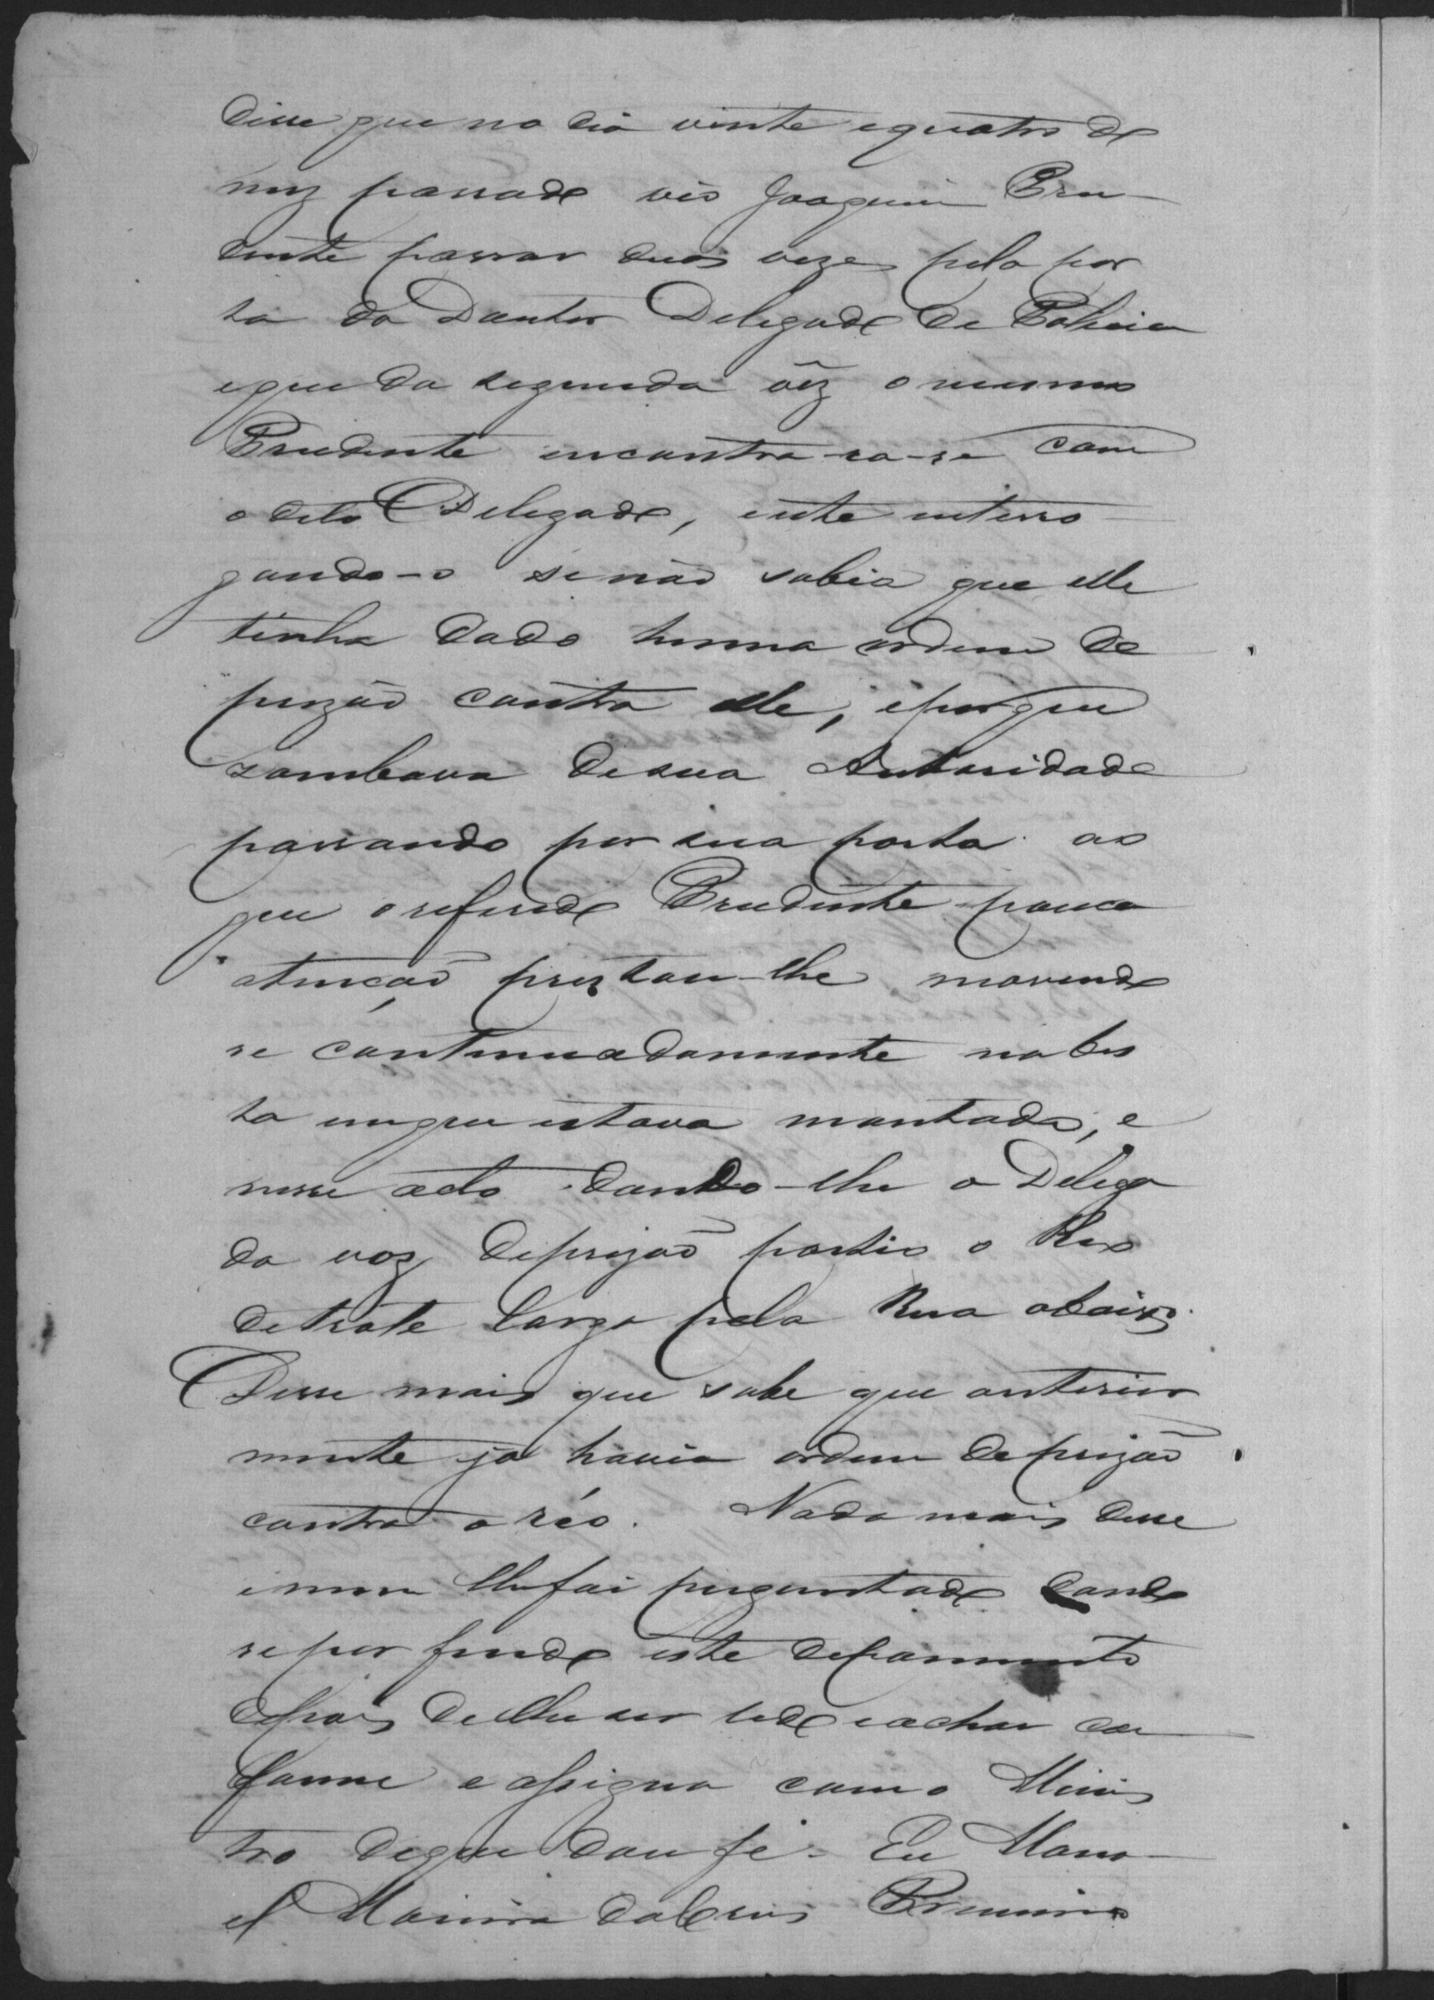 disse que no dia vinte equatro de
mez passado vio Joaquim Pru-
dente passar duas vezes pela por
ta do Doutor Delegado de Policia
eque da segunda vêz o mesmo
Prudente encontra-ra-se com
o dito Delegado, este interro
gando-o se não sabia que elle
tinha dado huma ordem de
prizão contra elle, eporque
zombava desua Autoridade
passando por sua porta. ao
que oreferido Prudente pouca
atenção prestou-lhe movendo
se continuadamente na bes
ta emque estava montado, e
nesse acto dando-lhe o Delega
do voz deprizão partio o Reo
detrote largo pela Rua abaixo.
Disse mais que sabe que anterior
mente ja havia ordem deprizão
contra o réo. Nada mais disse
enem lhefoi perguntado dando
sepor findo este depoimento
depois delheser lido eachar con
forme eassigna com o Minis
tro deque dou fé. Eu Mano-
el Moreira daCruz